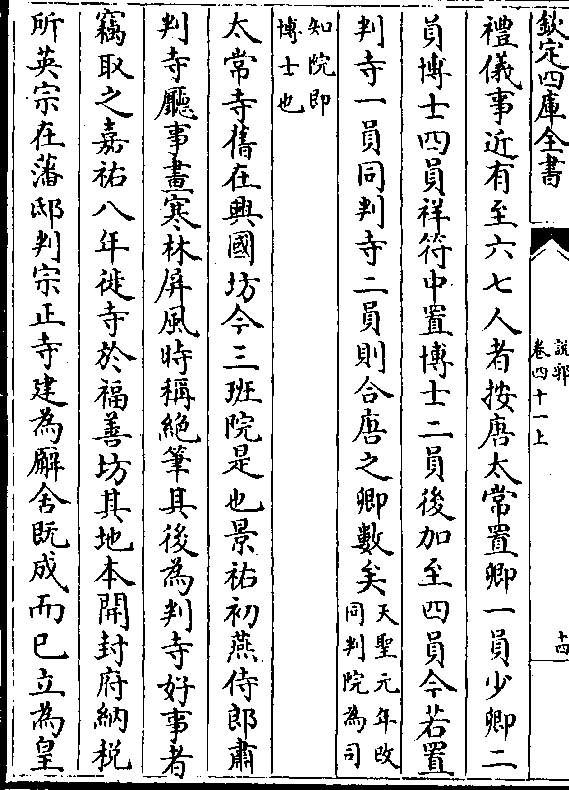 欽定四庫全書
說郛
卷四十一上
十四
禮儀事近有至六七人者按唐太常置卿一員少卿二
員博士四員祥符中置博士二員後加至四員今若置
判寺一員同判寺二員則合唐之卿數矣天聖元年改
同判院為司
知院即
博士也
太常寺舊在興國坊今三班院是也景祐初燕侍郎肅
判寺廳事畫寒林屏風時稱絕筆其後為判寺好事者
竊取之嘉祐八年徙寺於福善坊其地本開封府納稅
所英宗在藩邸判宗正寺建為廨舍既成而已立為皇